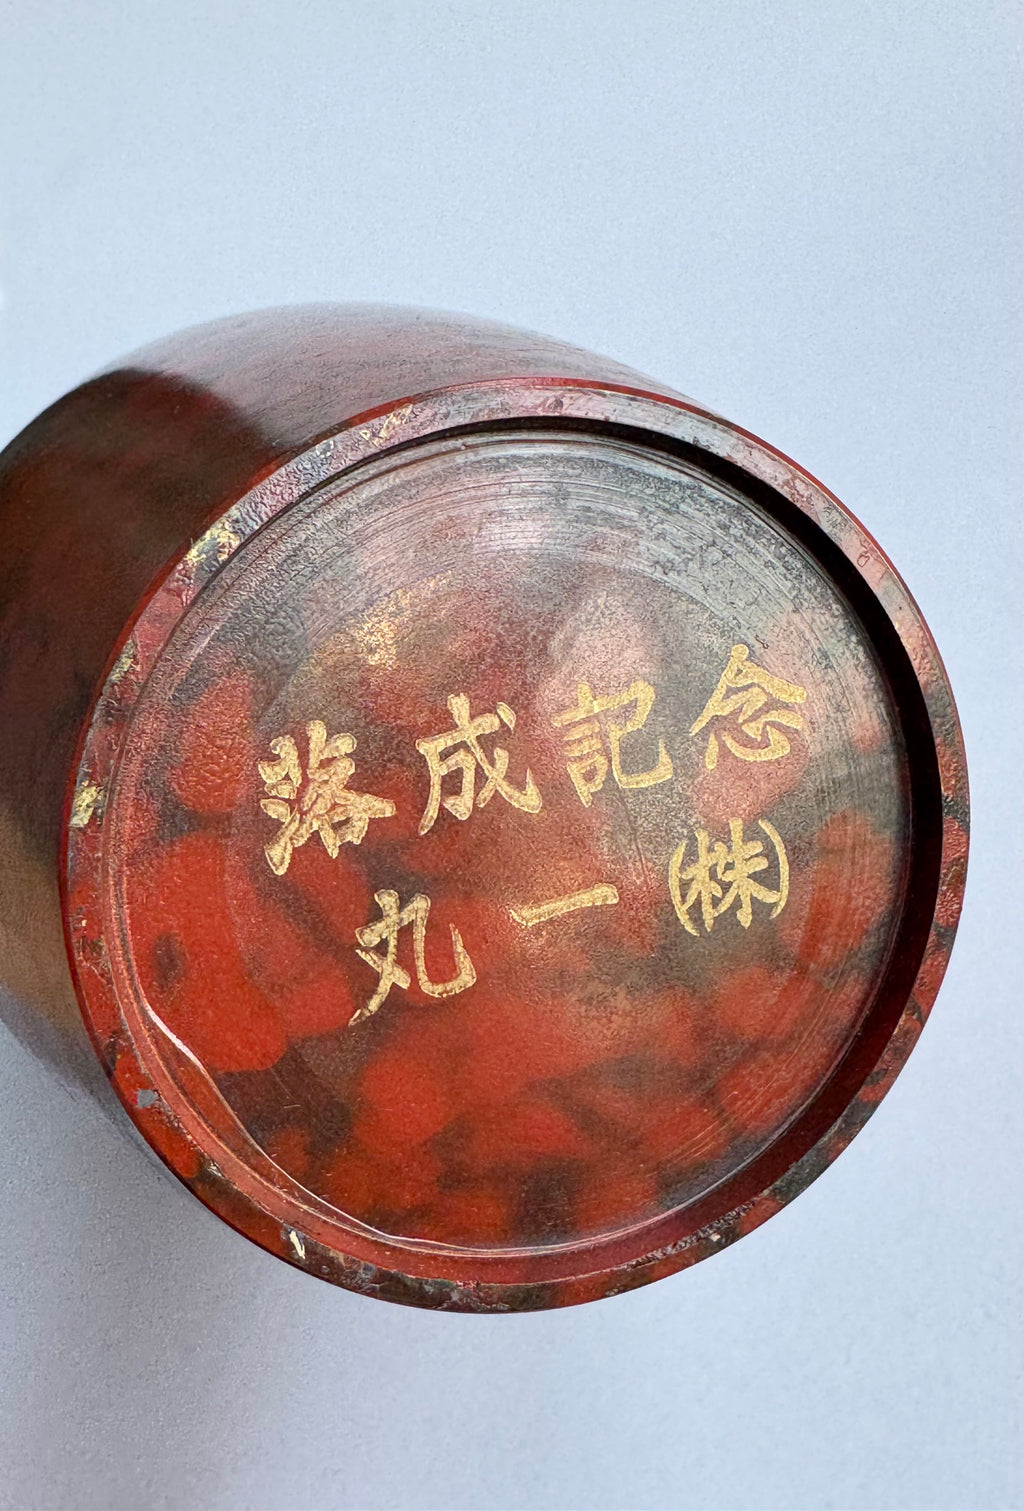 落成記念
丸一㈱